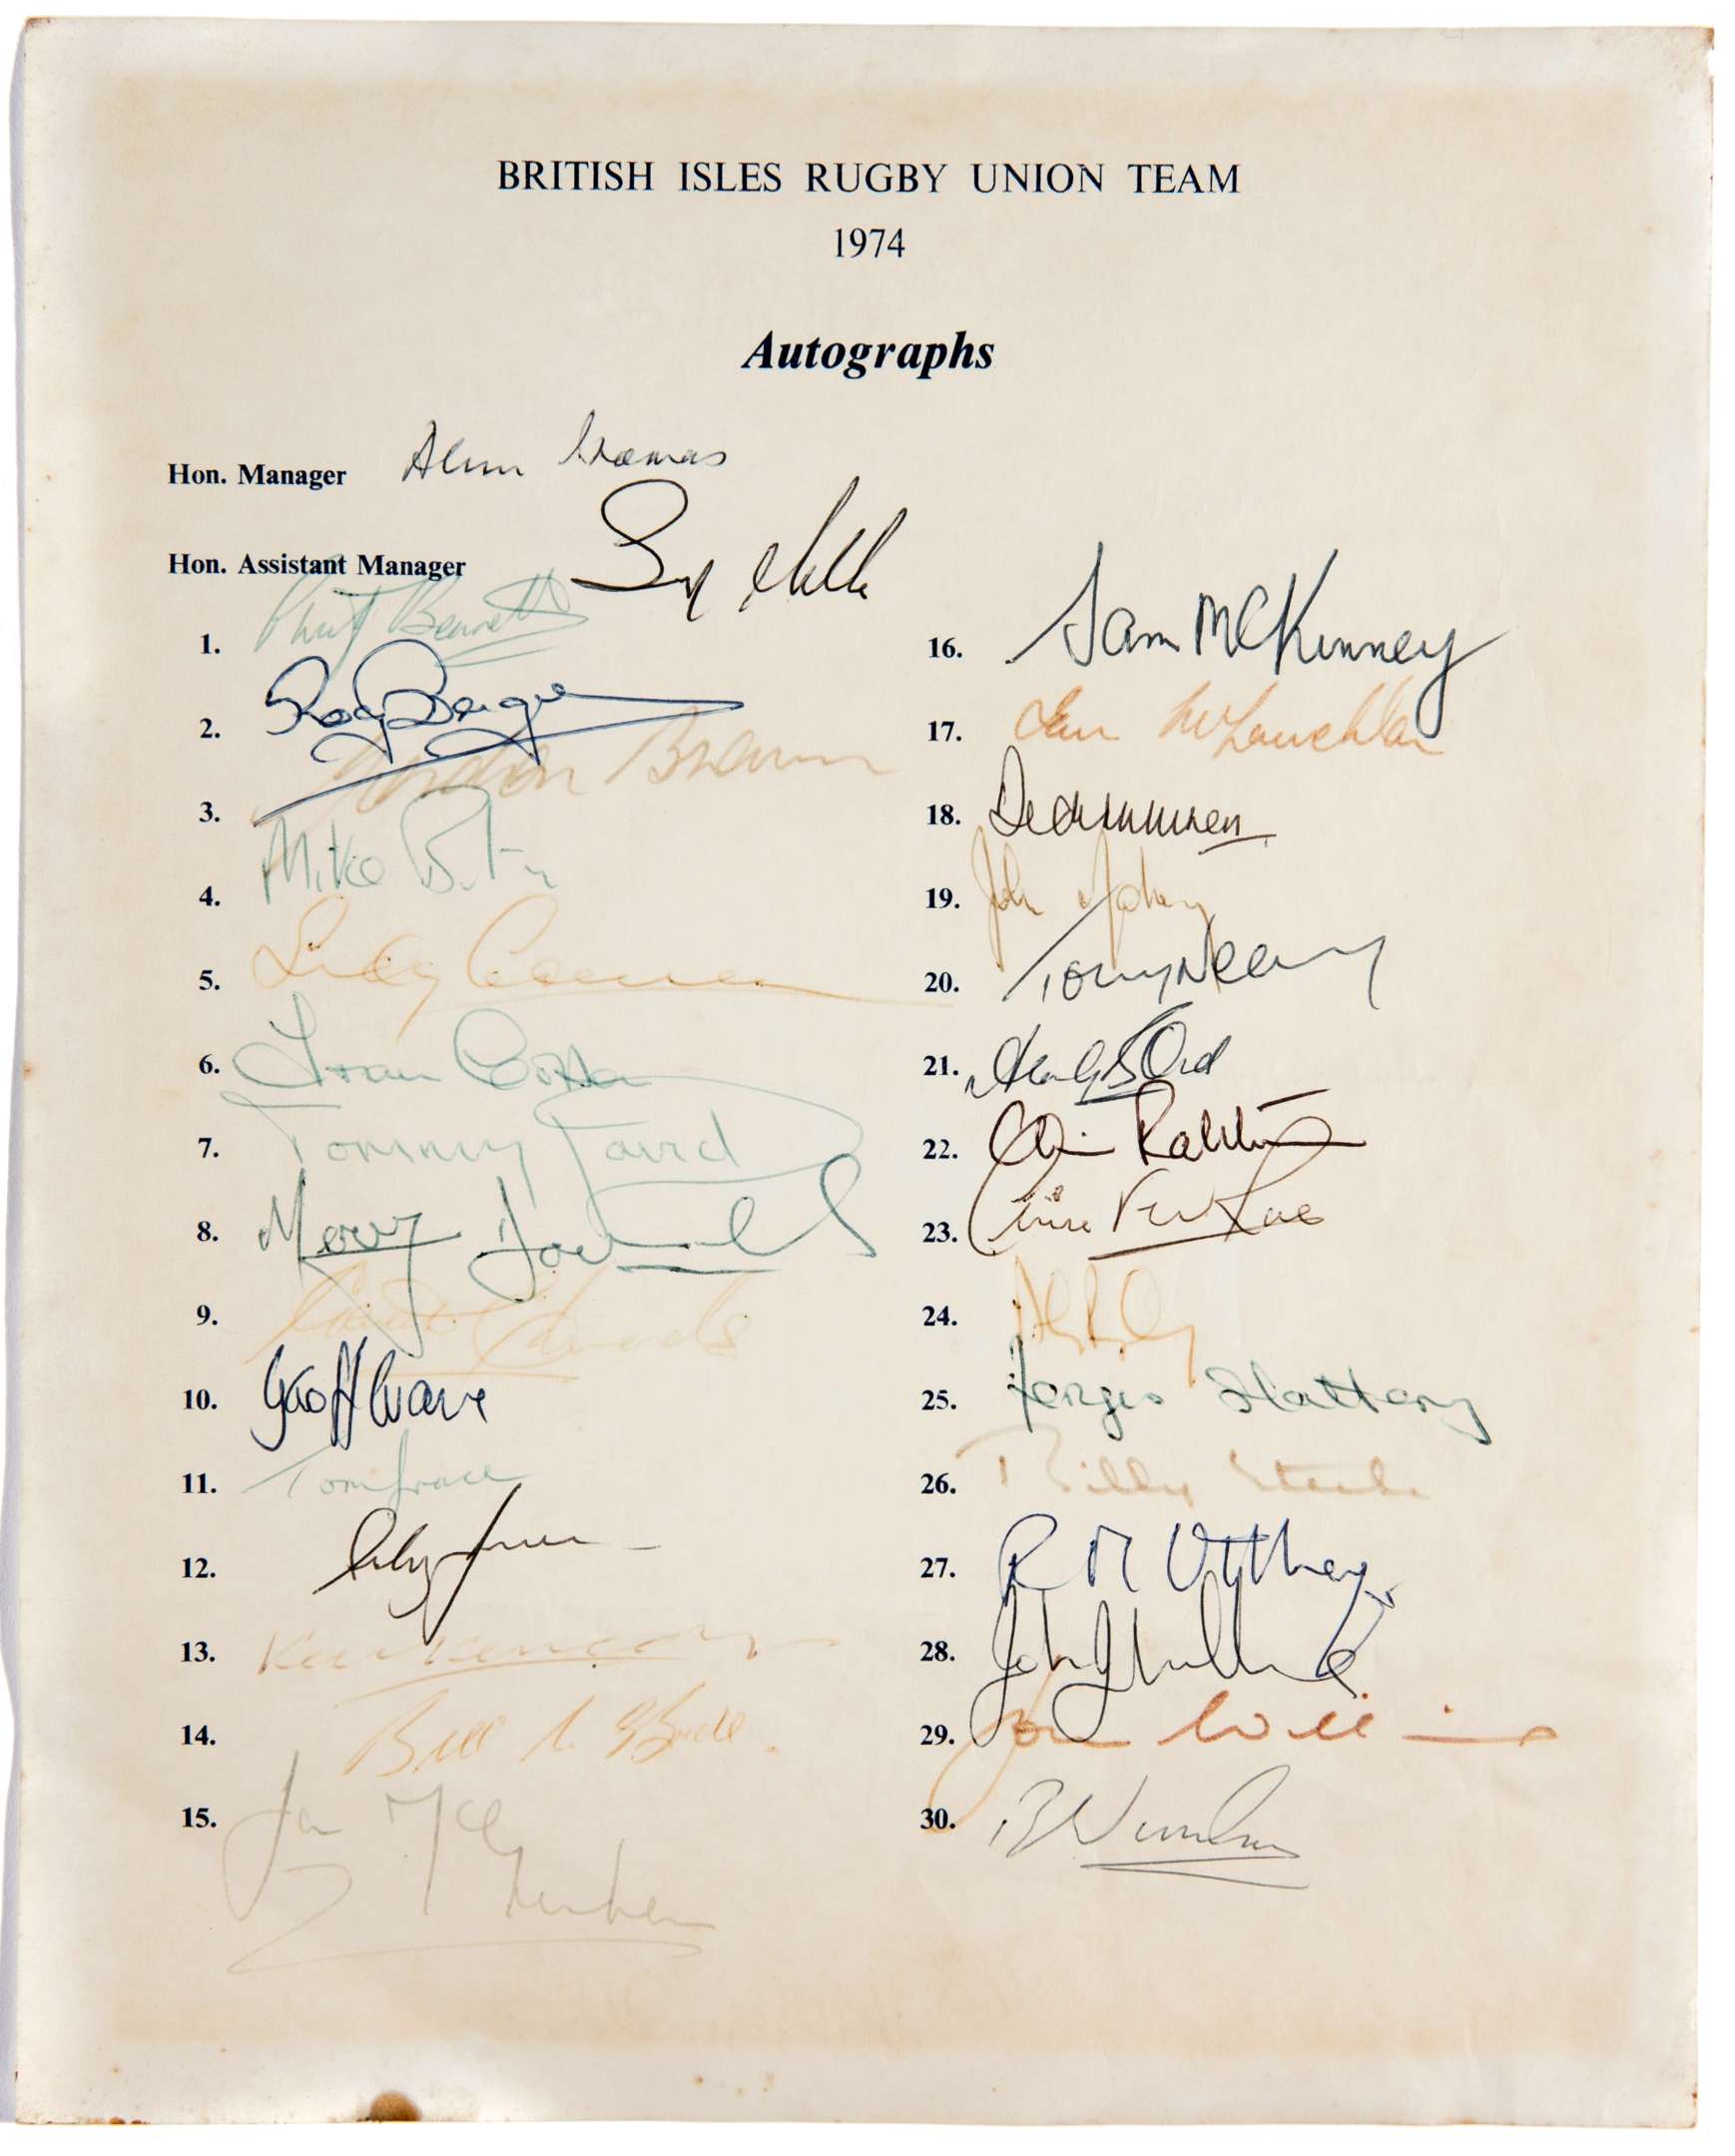 BRITISH ISLES RUGBY UNION TEAM
1974
Autographs
Hon. Manager Alun Thomas
Hon. Assistant Manager
1. Phil Bennett
2. Roger
3. Gordon Brown
4. Mike Burton
5. 
6. Fran Cotton
7. Tommy David
8. Mervyn Davies
9. Gareth Edwards
10. Geoff Evans
11. Tom Grace
12.
13. Ken Kennedy
14. Bill McBride
15. Ian McGeechan
16. Sam McKinney
17. Ian McLauchlan
18.
19. John Moloney
20. Tony Neary
21.
22. Chris Ralston
23. Clive Rees
24.
25. Fergus Slattery
26. Billy Steele
27. R M Uttley
28. John J Williams
29. John Williams
30. R Windsor